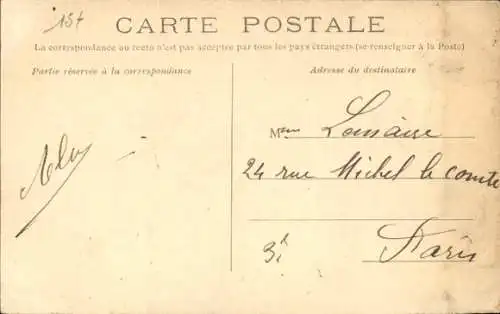 CARTE POSTALE
La correspondance au recto n'est pas acceptée par tous les pays étrangers (se renseigner à la Poste)
Partie réservée à la correspondance
Adresse du destinataire
Mme
24 rue Michel le comte
Paris